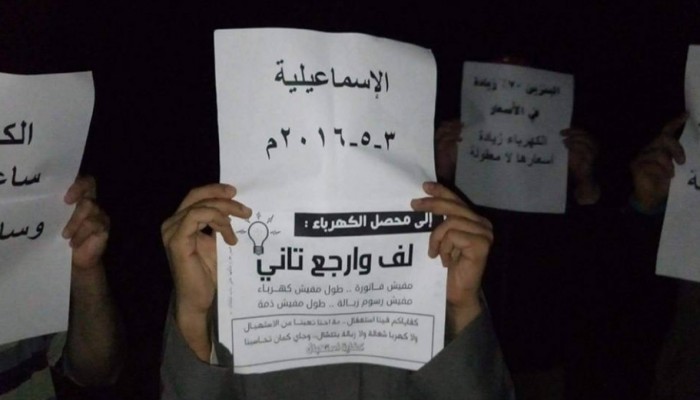 الإسماعيلية
٣-٥-٢٠١٦م
إلى محصل الكهرباء :
لف وارجع تاني
مفيش فاتورة .. طول مفيش كهرباء
مفيش رسوم زبالة .. طول مفيش ذمة
كفاياكم فينا استغفال .. ده احنا تعبنا من الاستهبال
ولا كهربا شغالة ولا زبالة بتتشال.. وجاي كمان تحاسبنا
كفاية استغفال
البنزين ٧٠٪ زيادة
في الأسعار
الكهرباء زيادة
أسعارها لا معقولة
الك
ساع
وسا
ة